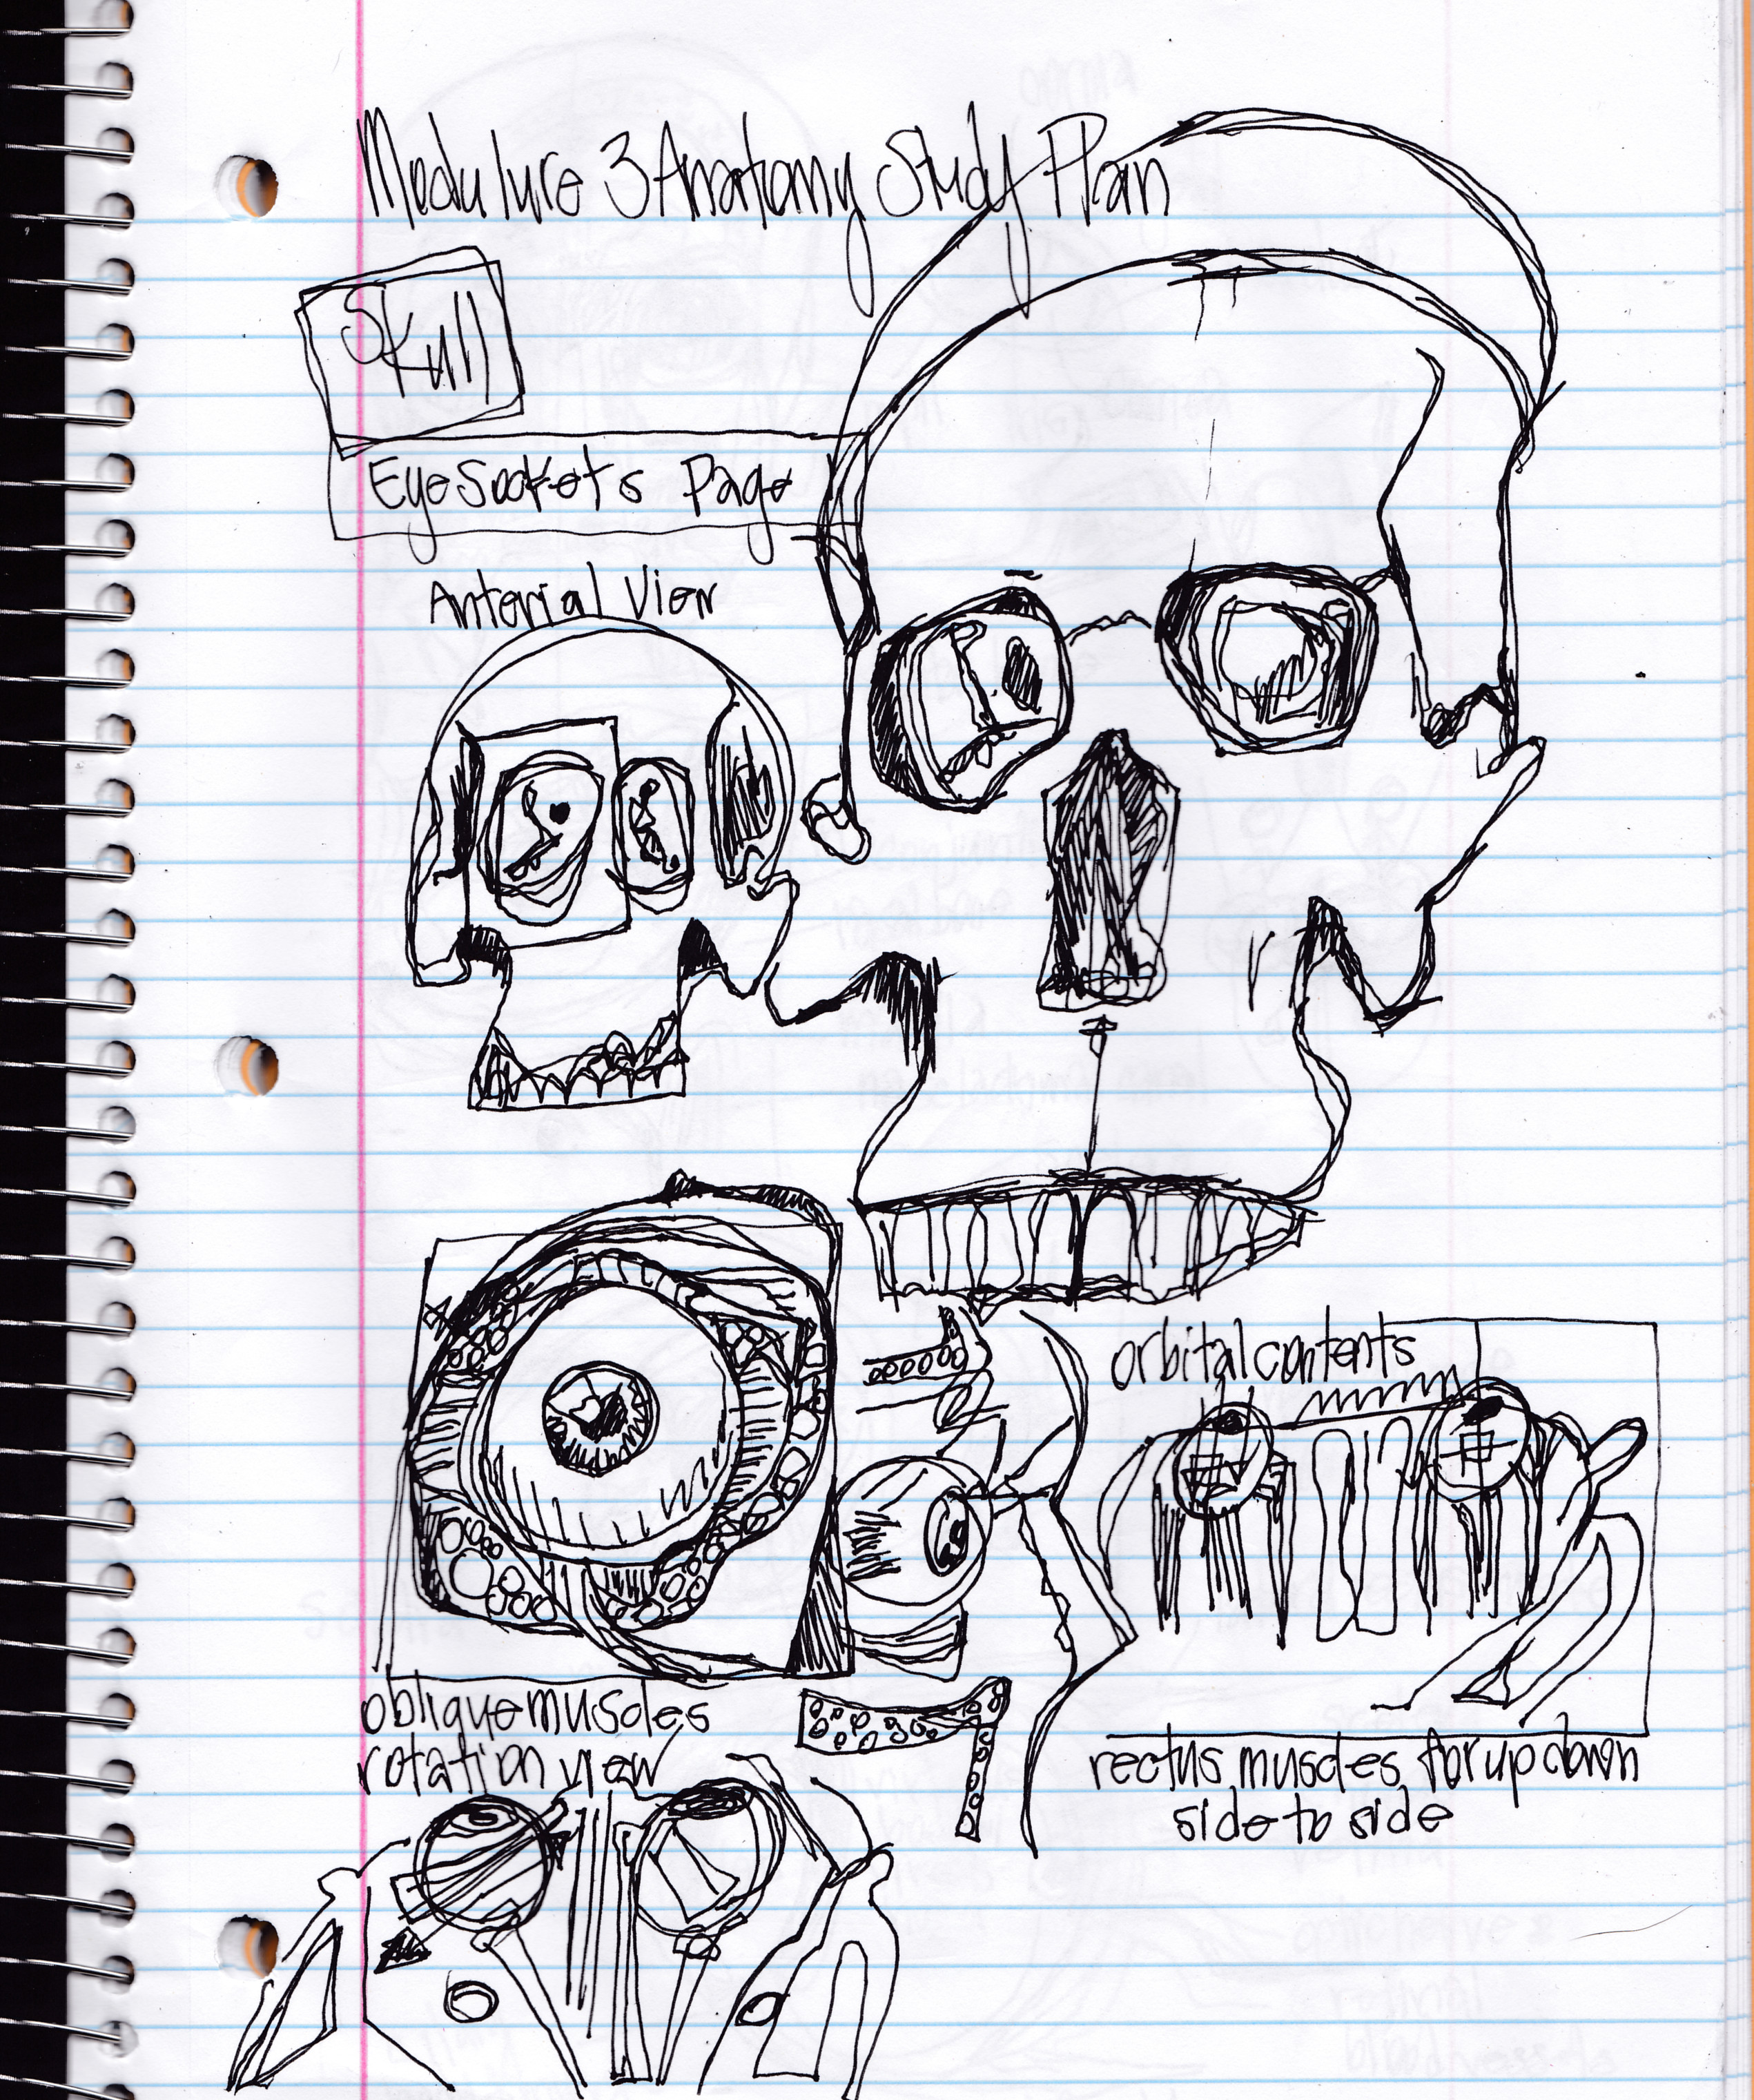 Modulure 3 Anatomy Study Plan
Skull
Eye Sockets Page
Anterial View
orbital contents
oblique muscles
rotation view
rectus muscles for up down
side to side